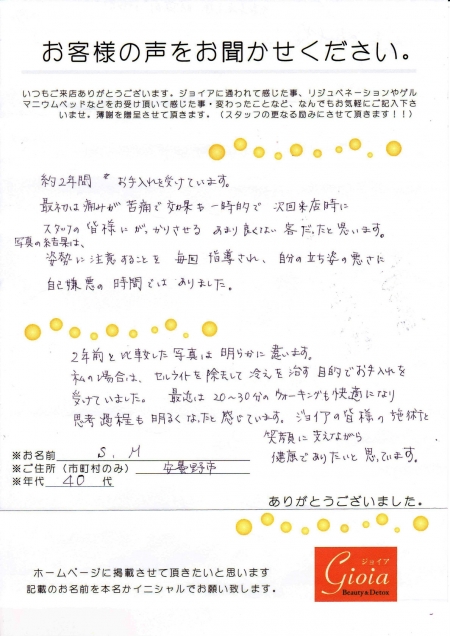 お客様の声をお聞かせください。
いつもご来店ありがとうございます。ジョイアに通われて感じた事、リジュベネーションやゲル
マニウムベッドなどをお受け頂いて感じた事・変わったことなど、なんでもお気軽にご記入下さ
いませ。薄謝を贈呈させて頂きます。（スタッフの更なる励みにさせて頂きます！！）
約2年間 お手入れを受けています。
最初は痛みが苦痛で効果も一時的で 次回来店時に
スタッフの皆様にがっかりさせる あまり良くない客だったと思います。
写真の結果は、
姿勢に注意することを 毎回指導され、自分の立ち姿の悪さに
自己嫌悪の時間ではありました。
2年前と比較した写真は明らかに違います。
私の場合は、セルライトを除去して冷えを治す目的でお手入れを
受けていました。 最近は20〜30分のウォーキングも快適になり
思考過程も明るくなったと感じています。ジョイアの皆様の施術と
笑顔に支えながら
健康でありたいと思っています。
※お名前 S.M
※ご住所（市町村のみ） 安曇野市
※年代 40 代
ありがとうございました。
ホームページに掲載させて頂きたいと思います
記載のお名前を本名かイニシャルでお願い致します。
ジョイア
Gioia
Beauty & Detox